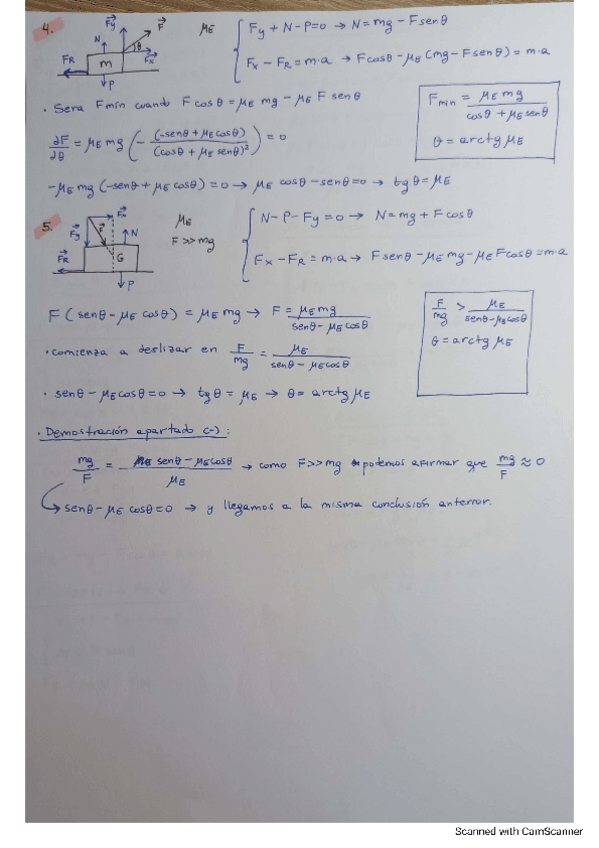 4.
Fy F
N θ Fx
FR m
P
μE
Fy + N - P = 0 → N = mg - F senθ
Fx - FR = m·a → F cosθ - μE (mg - F senθ) = m·a
· Sera Fmín cuando F cosθ = μE mg - μE F senθ
∂F/∂θ = μE mg (- (-senθ + μE cosθ)/(cosθ + μE senθ)²) = 0
Fmin = μE mg/(cosθ + μE senθ)
θ = arctg μE
-μE mg (-senθ + μE cosθ) = 0 → μE cosθ - senθ = 0 → tgθ = μE
5.
Fx
Fy F N
FR G
P
μE
F >> mg
N - P - Fy = 0 → N = mg + F cosθ
Fx - FR = m·a → F senθ - μE mg - μE F cosθ = m·a
F (senθ - μE cosθ) = μE mg → F = μE mg/(senθ - μE cosθ)
F/mg > μE/(senθ - μE cosθ)
θ = arctg μE
· comienza a deslizar en F/mg = μE/(senθ - μE cosθ)
· senθ - μE cosθ = 0 → tgθ = μE → θ = arctg μE
· Demostración apartado c-):
mg/F = (senθ - μE cosθ)/μE → como F >> mg podemos afirmar que mg/F ≈ 0
→ senθ - μE cosθ = 0 → y llegamos a la misma conclusión anterior.
Scanned with CamScanner